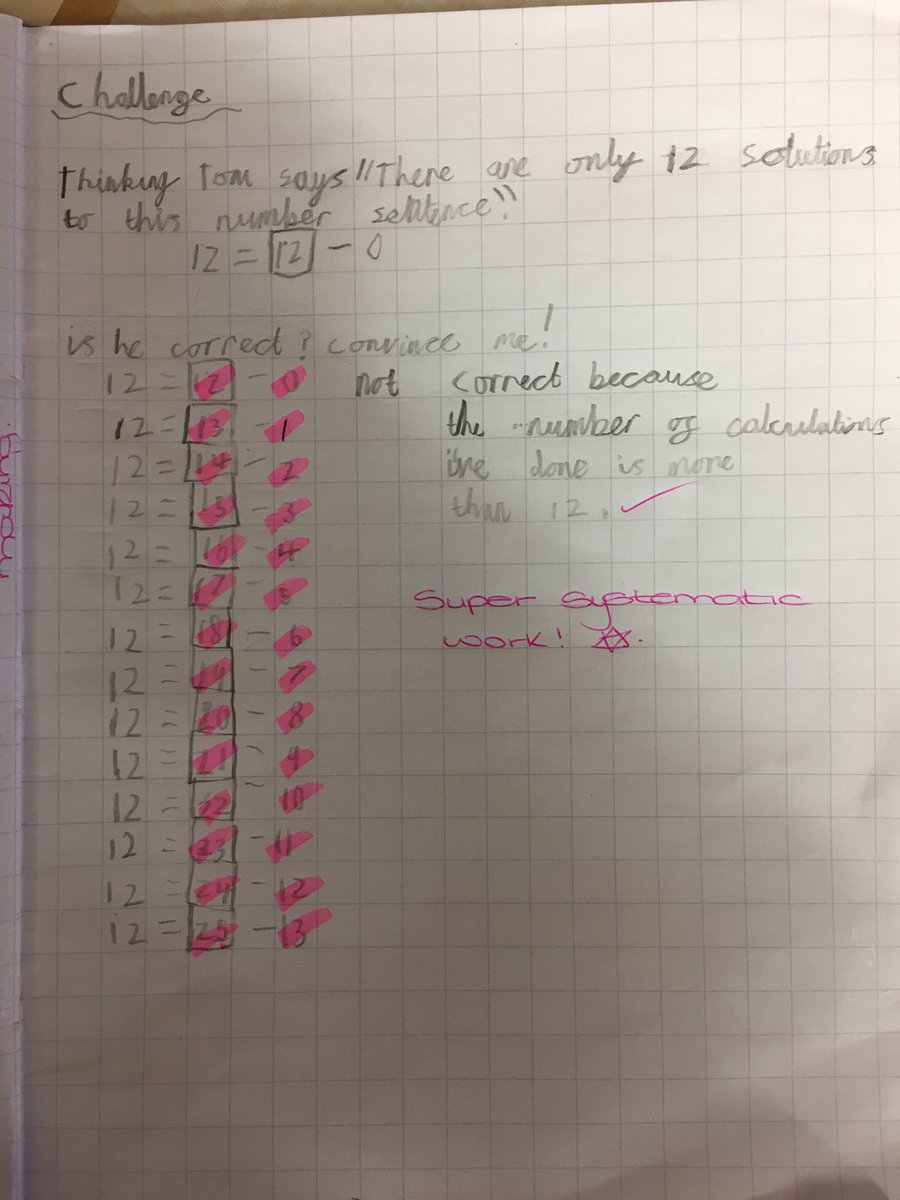 Challenge
Thinking Tom says "There are only 12 solutions
to this number sentence".
12 = 12 - 0
is he correct? convince me!
12 = 12 - 0
12 = 13 - 1
12 = 14 - 2
12 = 15 - 3
12 = 16 - 4
12 = 17 - 5
12 = 18 - 6
12 = 19 - 7
12 = 20 - 8
12 = 21 - 9
12 = 22 - 10
12 = 23 - 11
12 = 24 - 12
12 = 25 - 13
not correct because
the number of calculations
ive done is more
than 12.
Super systematic
work!
making.